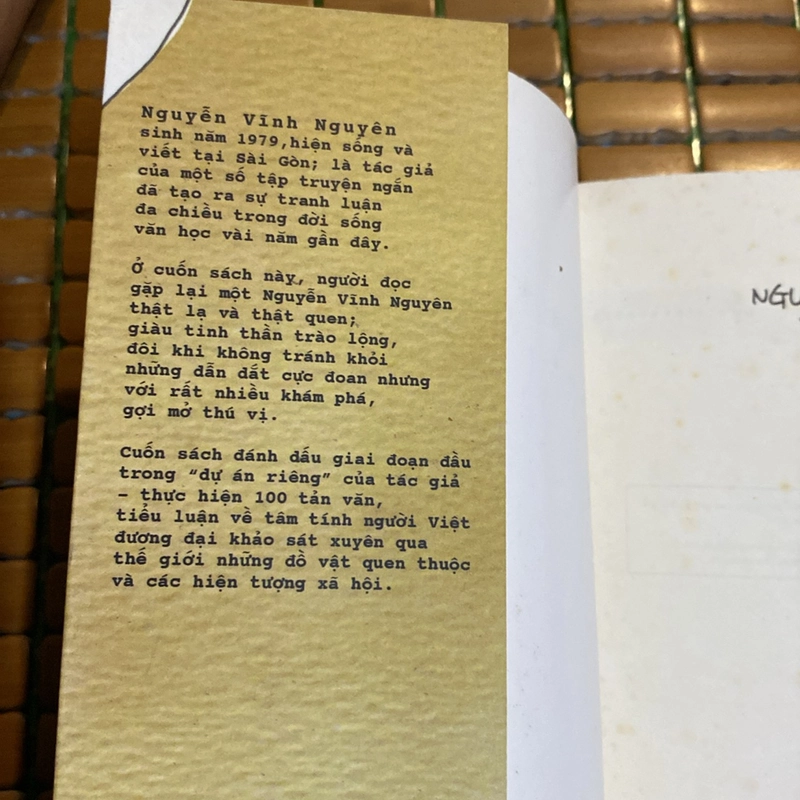 Nguyễn Vĩnh Nguyên
sinh năm 1979,hiện sống và
viết tại Sài Gòn; là tác giả
của một số tập truyện ngắn
đã tạo ra sự tranh luận
đa chiều trong đời sống
văn học vài năm gần đây.
ở cuốn sách này, người đọc
gặp lại một Nguyễn Vĩnh Nguyên
thật lạ và thật quen;
giàu tinh thần trào lộng,
đôi khi không tránh khỏi
những dẫn dắt cực đoan nhưng
với rất nhiều khám phá,
gợi mở thú vị.
Cuốn sách đánh dấu giai đoạn đầu
trong “dự án riêng” của tác giả
– thực hiện 100 tản văn,
tiểu luận về tâm tính người Việt
đương đại khảo sát xuyên qua
thế giới những đồ vật quen thuộc
và các hiện tượng xã hội.